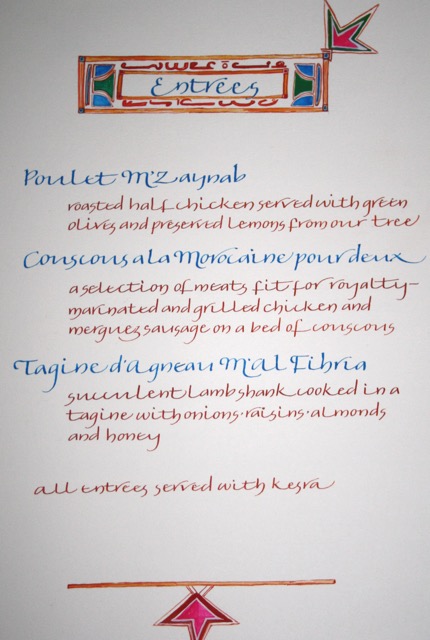 Entrées
Poulet M'Zaynab
roasted half chicken served with green
olives and preserved lemons from our tree
Couscous a la Morocaine pour deux
a selection of meats fit for royalty-
marinated and grilled chicken and
merguez sausage on a bed of couscous
Tagine d'Agneau M'Al Fihria
succulent lamb shank cooked in a
tagine with onions·raisins·almonds
and honey
all entrées served with kesra